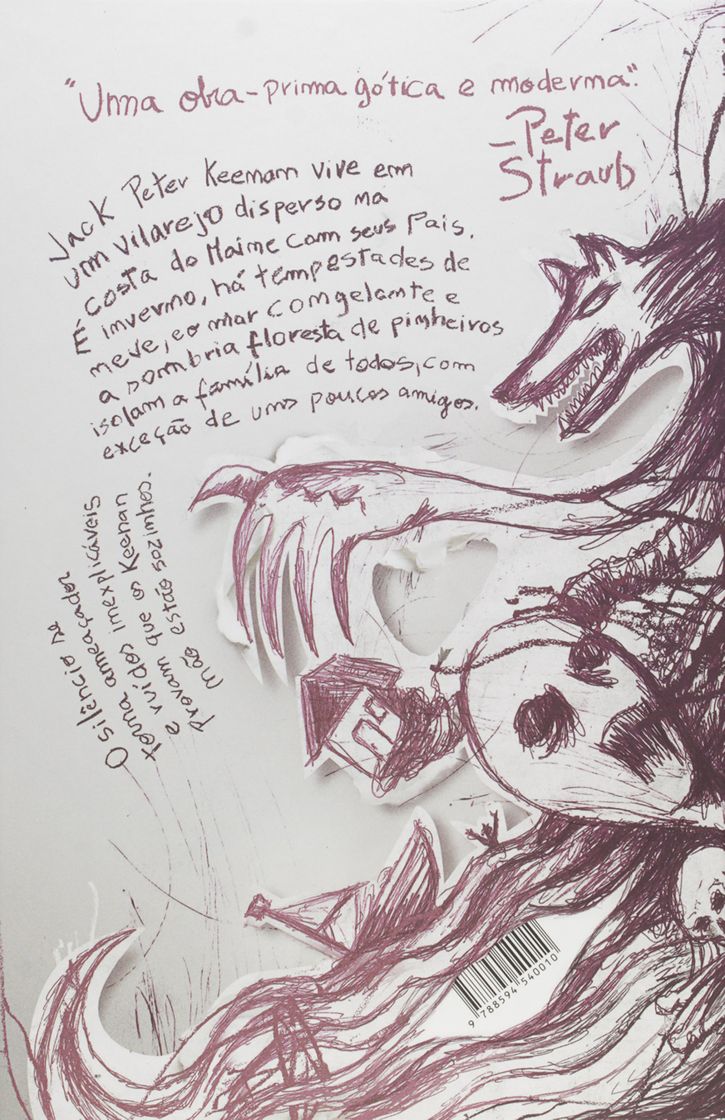 "Uma obra-prima gótica e moderna".
—Peter
Straub
Jack Peter Keenan vive em
um vilarejo disperso na
costa do Maine com seus pais.
É inverno, há tempestades de
neve, e o mar congelante e
a sombria floresta de pinheiros
isolam a família de todos, com
exceção de uns poucos amigos.
O silêncio se
torna ameaçador
e ruídos inexplicáveis
provam que os Keenan
não estão sozinhos.
9 788594 540010